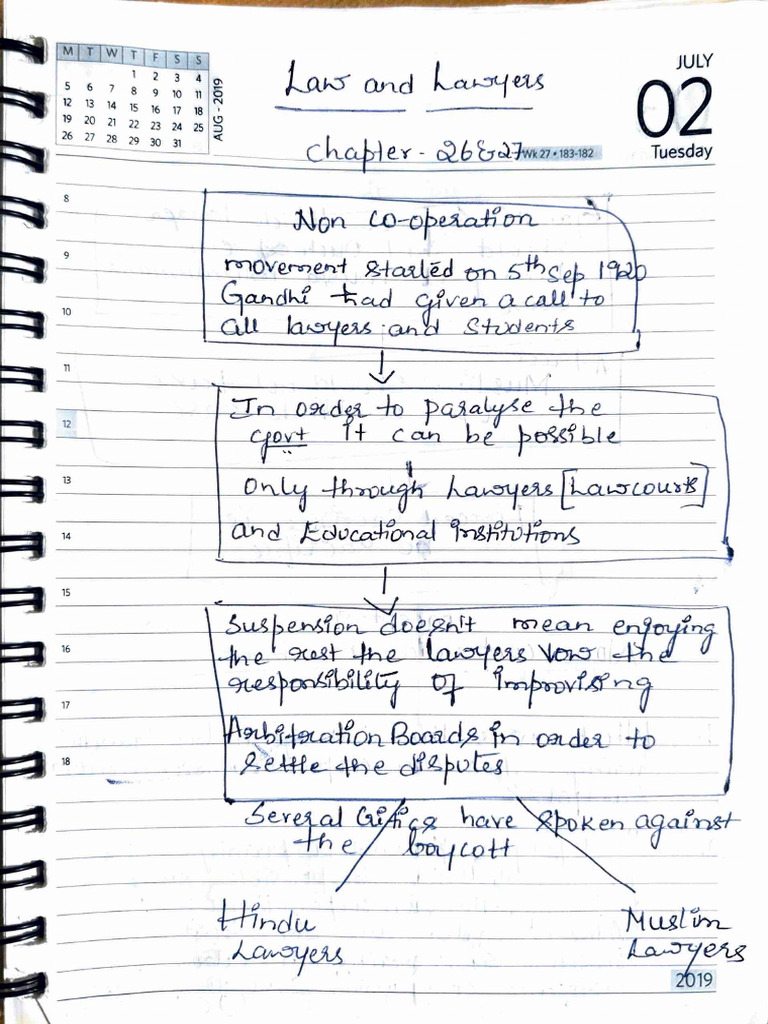 M T W T F S S
1 2 3 4
5 6 7 8 9 10 11
12 13 14 15 16 17 18
19 20 21 22 23 24 25
26 27 28 29 30 31
AUG - 2019
JULY
02
Tuesday
Wk 27 • 183-182
Law and Lawyers
Chapter - 26 & 27
8
Non co-operation
9
movement started on 5th Sep 1920
Gandhi had given a call to
10
all lawyers and students
11
In order to paralyse the
12
govt it can be possible
13
only through Lawyers [Lawcourts]
14
and Educational institutions
15
Suspension doesn't mean enjoying
16
the rest the lawyers vow the
responsibility of improvising
17
Arbitration Boards in order to
18
settle the disputes
Several Critics have spoken against
the boycott
Hindu Muslim
Lawyers Lawyers
2019